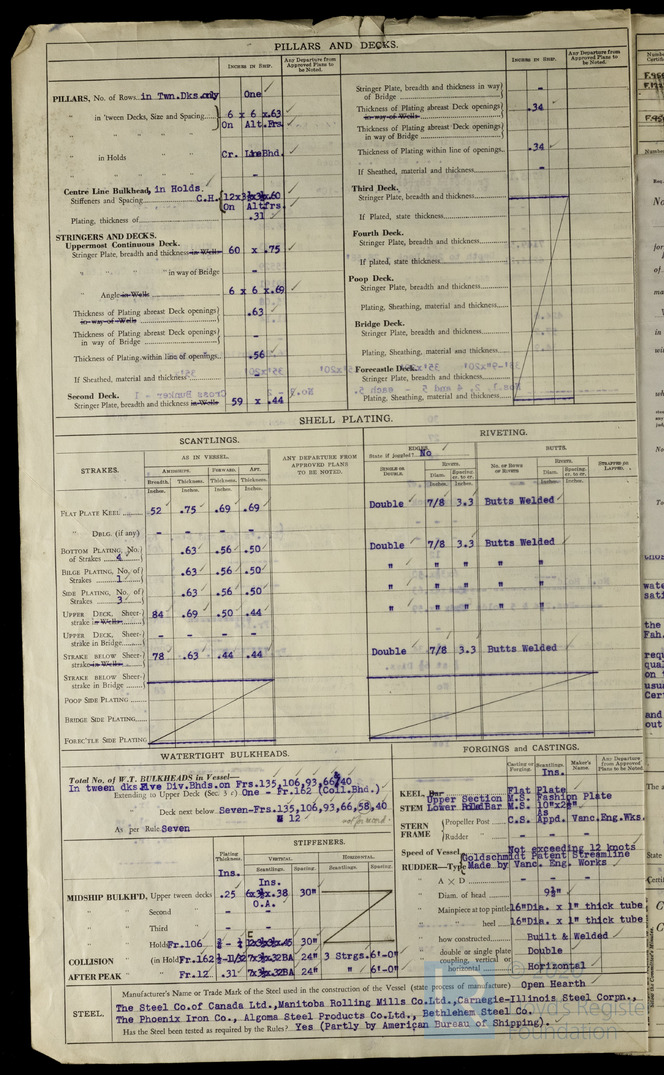 PILLARS AND DECKS.
INCHES IN SHIP.
Any Departure from Approved Plans to be Noted.
PILLARS, No. of Rows in Twn.Dks.only One
" in 'tween Decks, Size and Spacing 6 x 6 x.63
On Alt.Frs.
" " "
" in Holds Cr. Line Bhd.
" "
Centre Line Bulkhead, in Holds.
Stiffeners and Spacing C.H.
On Alt.frs.
Plating, thickness of .31
STRINGERS AND DECKS.
Uppermost Continuous Deck.
Stringer Plate, breadth and thickness in Wells 60 x .75
" " " in way of Bridge -
" Angle in Wells 6 x 6 x.69
Thickness of Plating abreast Deck openings in way of Wells .63
Thickness of Plating abreast Deck openings in way of Bridge -
Thickness of Plating within line of openings .56
If Sheathed, material and thickness -
Second Deck.
Stringer Plate, breadth and thickness in Wells 59 x .44
INCHES IN SHIP.
Any Departure from Approved Plans to be Noted.
Stringer Plate, breadth and thickness in way of Bridge -
Thickness of Plating abreast Deck openings in way of Wells .34
Thickness of Plating abreast Deck openings in way of Bridge
Thickness of Plating within line of openings .34
If Sheathed, material and thickness -
Third Deck.
Stringer Plate, breadth and thickness
If Plated, state thickness
Fourth Deck.
Stringer Plate, breadth and thickness
If plated, state thickness
Poop Deck.
Stringer Plate, breadth and thickness
Plating, Sheathing, material and thickness
Bridge Deck.
Stringer Plate, breadth and thickness
Plating, Sheathing, material and thickness
Forecastle Deck.
Stringer Plate, breadth and thickness
Plating, Sheathing, material and thickness
SHELL PLATING.
SCANTLINGS.
RIVETING.
STRAKES.
AS IN VESSEL.
AMIDSHIPS. FORWARD. AFT.
Breadth. Thickness. Thickness. Thickness.
Inches. Inches. Inches. Inches.
ANY DEPARTURE FROM APPROVED PLANS TO BE NOTED.
EDGES.
State if joggled? No
SINGLE OR DOUBLE.
RIVETS.
Diam. Spacing cr. to cr.
Inches. Inches.
BUTTS.
NO. OF ROWS OF RIVETS
RIVETS.
Diam. Spacing cr. to cr.
Inches. Inches.
STRAPPED OR LAPPED.
FLAT PLATE KEEL 52 .75 .69 .69 Double 7/8 3.3 Butts Welded
" DBLG. (if any) - - - -
BOTTOM PLATING, No. of Strakes 4 .63 .56 .50 Double 7/8 3.3 Butts Welded
BILGE PLATING, No. of Strakes 1 .63 .56 .50 " " " " "
SIDE PLATING, No. of Strakes 3 .63 .56 .50 " " " " "
UPPER DECK, Sheer-strake in Wells 84 .69 .50 .44 " " " " "
UPPER DECK, Sheer-strake in Bridge - - - -
STRAKE BELOW Sheer-strake in Wells 78 .63 .44 .44 Double 7/8 3.3 Butts Welded
STRAKE BELOW Sheer-strake in Bridge
POOP SIDE PLATING
BRIDGE SIDE PLATING
FOREC'TLE SIDE PLATING
WATERTIGHT BULKHEADS.
Total No. of W.T. BULKHEADS in Vessel—
In tween dks Five Div.Bhds.on Frs.135,106,93,66/40
Extending to Upper Deck (Sec. 3 c) One - Fr.162 (Coll.Bhd.)
" Deck next below Seven-Frs.135,106,93,66,58,40
& 12
As per Rule Seven
Plating Thickness.
Ins.
STIFFENERS.
VERTICAL. HORIZONTAL.
Scantlings. Spacing. Scantlings. Spacing.
Ins.
MIDSHIP BULKH'D, Upper tween decks .25 30"
O.A.
" " Second " - - -
" " Third " - - -
" " Hold Fr.106 30"
COLLISION " (in Hold) Fr.162 24" 3 Strgs. 6'-0"
AFTER PEAK " " Fr.12 .31 24" " 6'-0"
FORGINGS AND CASTINGS.
Casting or Forging. Scantlings. Maker's Name. Any Departure from Approved Plans to be Noted
Ins.
KEEL, Bar Flat Plate
Upper Section M.S. Fashion Plate
STEM Lower Rolled Bar M.S.
STERN FRAME Propeller Post C.S. As Appd. Vanc.Eng.Wks.
Rudder " - -
Speed of Vessel Not exceeding 12 knots
RUDDER—Type Goldschmidt Patent Streamline
Made by Vanc. Eng. Works
" A X D - -
" Diam. of head 9½"
" Mainpiece at top pintle 16"Dia. x 1" thick tube
" " heel 16"Dia. x 1" thick tube
" how constructed Built & Welded
" double or single plate Double
" coupling, vertical or horizontal Horizontal
STEEL.
Manufacturer's Name or Trade Mark of the Steel used in the construction of the Vessel (state process of manufacture) Open Hearth
The Steel Co.of Canada Ltd.,Manitoba Rolling Mills Co.Ltd.,Carnegie-Illinois Steel Corpn.,
The Phoenix Iron Co., Algoma Steel Products Co.Ltd., Bethlehem Steel Co.
Has the Steel been tested as required by the Rules? Yes (Partly by American Bureau of Shipping).
Lloyd's Register
Foundation